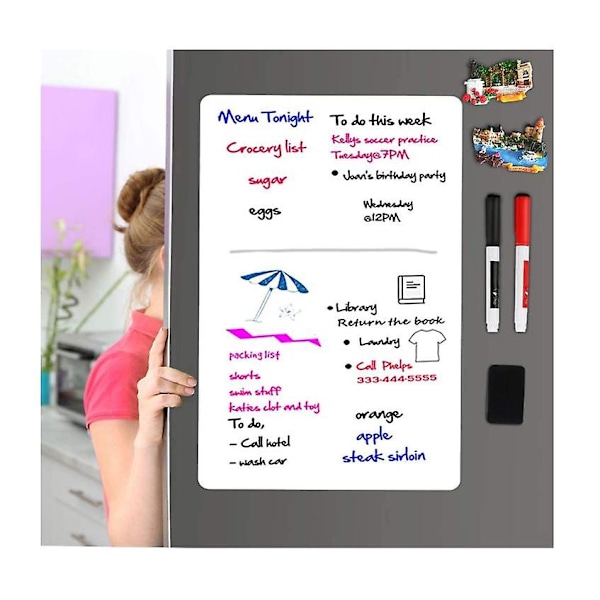 Menu Tonight
Crocery list
sugar
eggs
To do this week
Kellys soccer practice
Tuesday@7PM
• Joan's birthday party
Wednesday
@12PM
packing list
shorts
swim stuff
katies clot and toy
To do,
– Call hotel
– wash car
• Library
Return the book
• Laundry
• Call Phelps
333-444-5555
orange
apple
steak sirloin